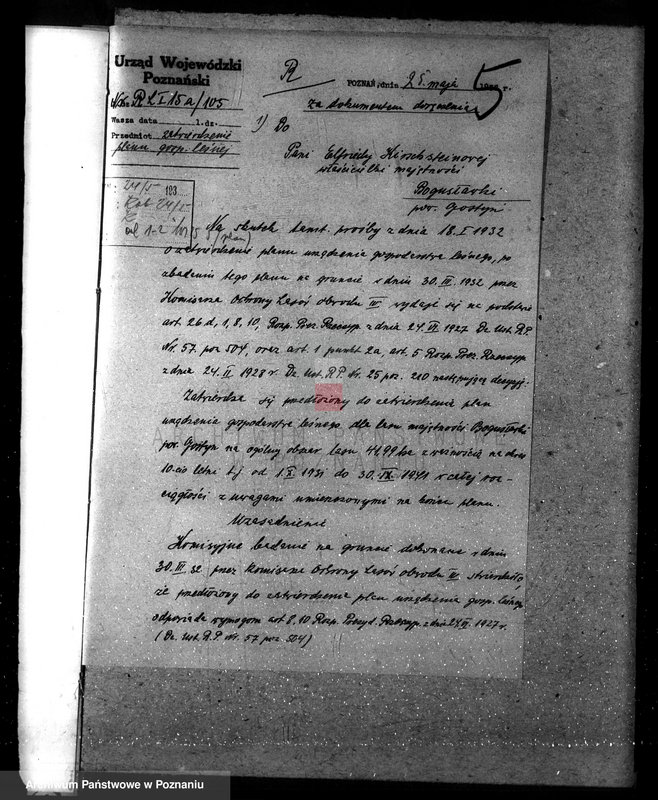 Urząd Wojewódzki
Poznański
R
POZNAŃ, dnia 25. maja 19 r.
5
Nr R L I 15a/105
za dokumentem doręczenia
Wasza data l. dz.
Przedmiot zatwierdzenie
planu gosp. leśnej
1) Do
Pani Elfriedy Kirschsteinowej
właścicielki majętności
Bogusławki
pow. Gostyń
103
Na skutek tamt. prośby z dnia 18.I 1932
(plan)
o zatwierdzenie planu urządzenia gospodarstwa leśnego, po
zbadaniu tego planu na gruncie w dniu 30.III.1932 przez
Komisarza Ochrony Lasów obwodu IV wydaje się na podstawie
art. 26 d, 1, 8, 10, Rozp. Prez. Rzeczyp z dnia 24.VI 1927 Dz. Ust. R.P.
Nr. 57. poz 504, oraz art. 1 punkt 2a, art. 5 Rozp. Prez. Rzeczyp
z dnia 24.II 1928 r. Dz. Ust. R.P. Nr. 25 poz. 220 następującą decyzję:
Zatwierdza się przedłożony do zatwierdzenia plan
urządzenia gospodarstwa leśnego dla lasu majętności Bogusławki
pow. Gostyń na ogólny obszar lasu 41,99 ha z ważnością na okres
10-cio letni t.j. od 1.X 1931 do 30.IX.1941 w całej roz-
ciągłości z uwagami umieszczonymi na końcu planu.
Uzasadnienie
Komisyjne badanie na gruncie dokonane w dniu
30.III.32 przez Komisarza Ochrony Lasów obwodu IV stwierdziło
że przedłożony do zatwierdzenia plan urządzenia gosp. leśnego
odpowiada wymogom art 8, 10 Rozp. Prezyd. Rzeczyp. z dnia 24.VI.1927 r.
(Dz. Ust. R.P. Nr. 57 poz 504)
Archiwum Państwowe w Poznaniu